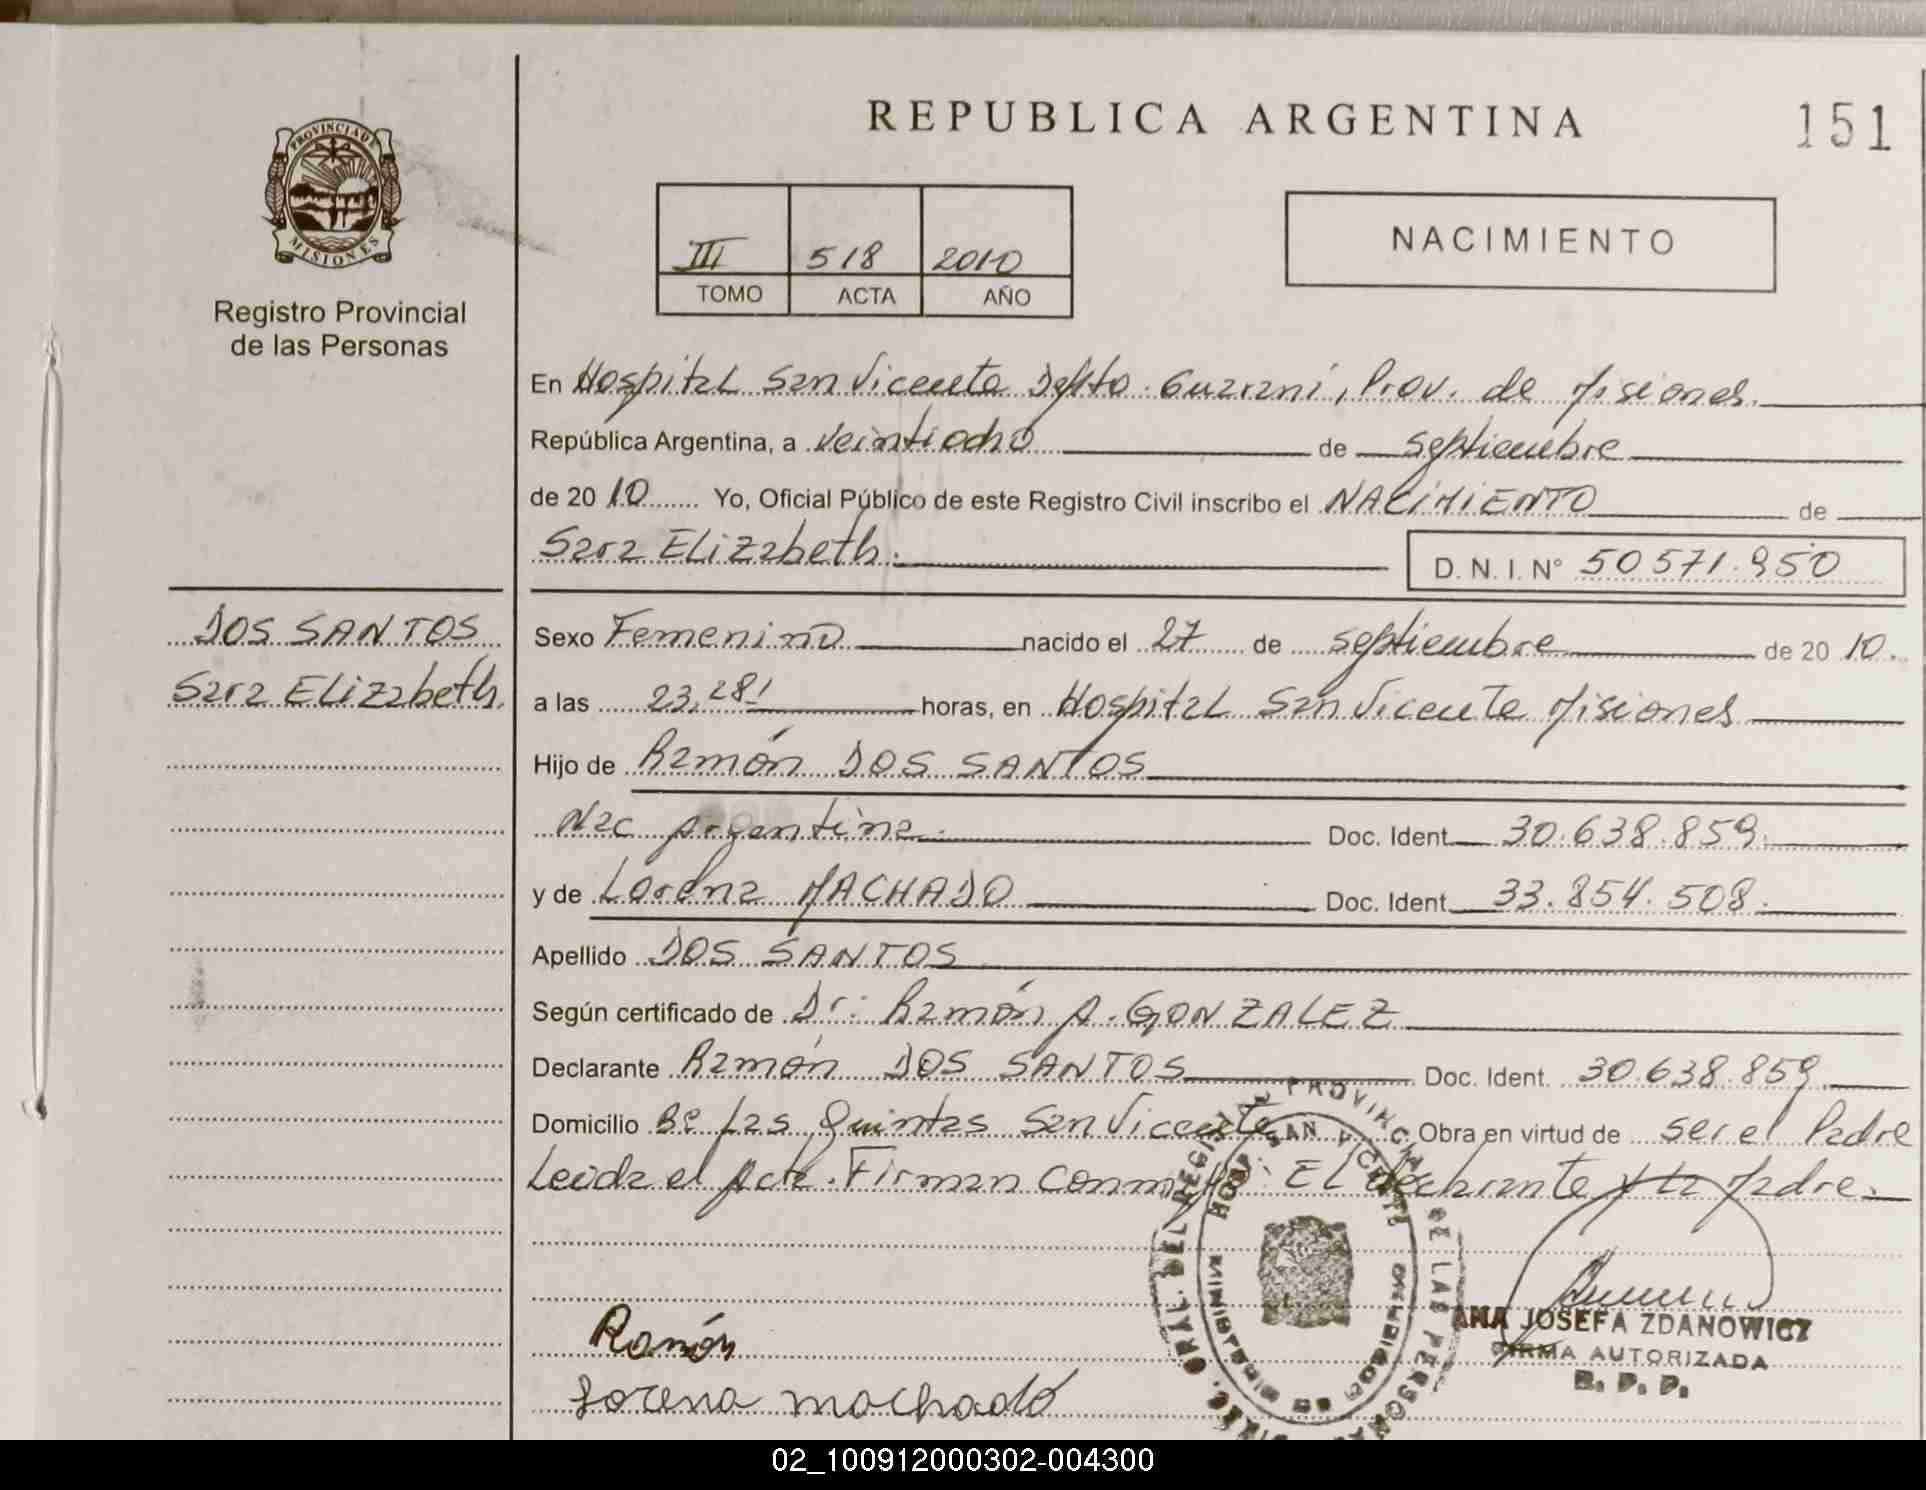 REPUBLICA ARGENTINA
151
PROVINCIA DE
MISIONES
Registro Provincial
de las Personas
III 518 2010
TOMO ACTA AÑO
NACIMIENTO
En Hospital San Vicente Depto. Guaraní, Prov. de Misiones.
República Argentina, a veintiocho de septiembre
de 2010 Yo, Oficial Público de este Registro Civil inscribo el NACIMIENTO de
Sara Elizabeth.
D. N. I. N° 50 571.950
DOS SANTOS
Sara Elizabeth.
Sexo Femenino nacido el 27 de septiembre de 2010.
a las 23,28' horas, en Hospital San Vicente Misiones
Hijo de Ramón DOS SANTOS
Nac Argentina. Doc. Ident. 30.638.859.
y de Lorena MACHADO Doc. Ident. 33.854.508.
Apellido DOS SANTOS
Según certificado de Dr. Ramón A. GONZALEZ
Declarante Ramón DOS SANTOS Doc. Ident. 30.638.859
Domicilio Bº Las Quintas San Vicente Obra en virtud de ser el Padre
Leida el Acta. Firman conmigo: El declarante y la Madre.
Ramón
Lorena machado
DIREC. GRAL. DEL REGISTRO PROVINCIAL DE LAS PERSONAS
HOSP. SAN VICENTE
MINISTERIO DE GOBIERNO
ANA JOSEFA ZDANOWICZ
FIRMA AUTORIZADA
R. P. P.
02_100912000302-004300